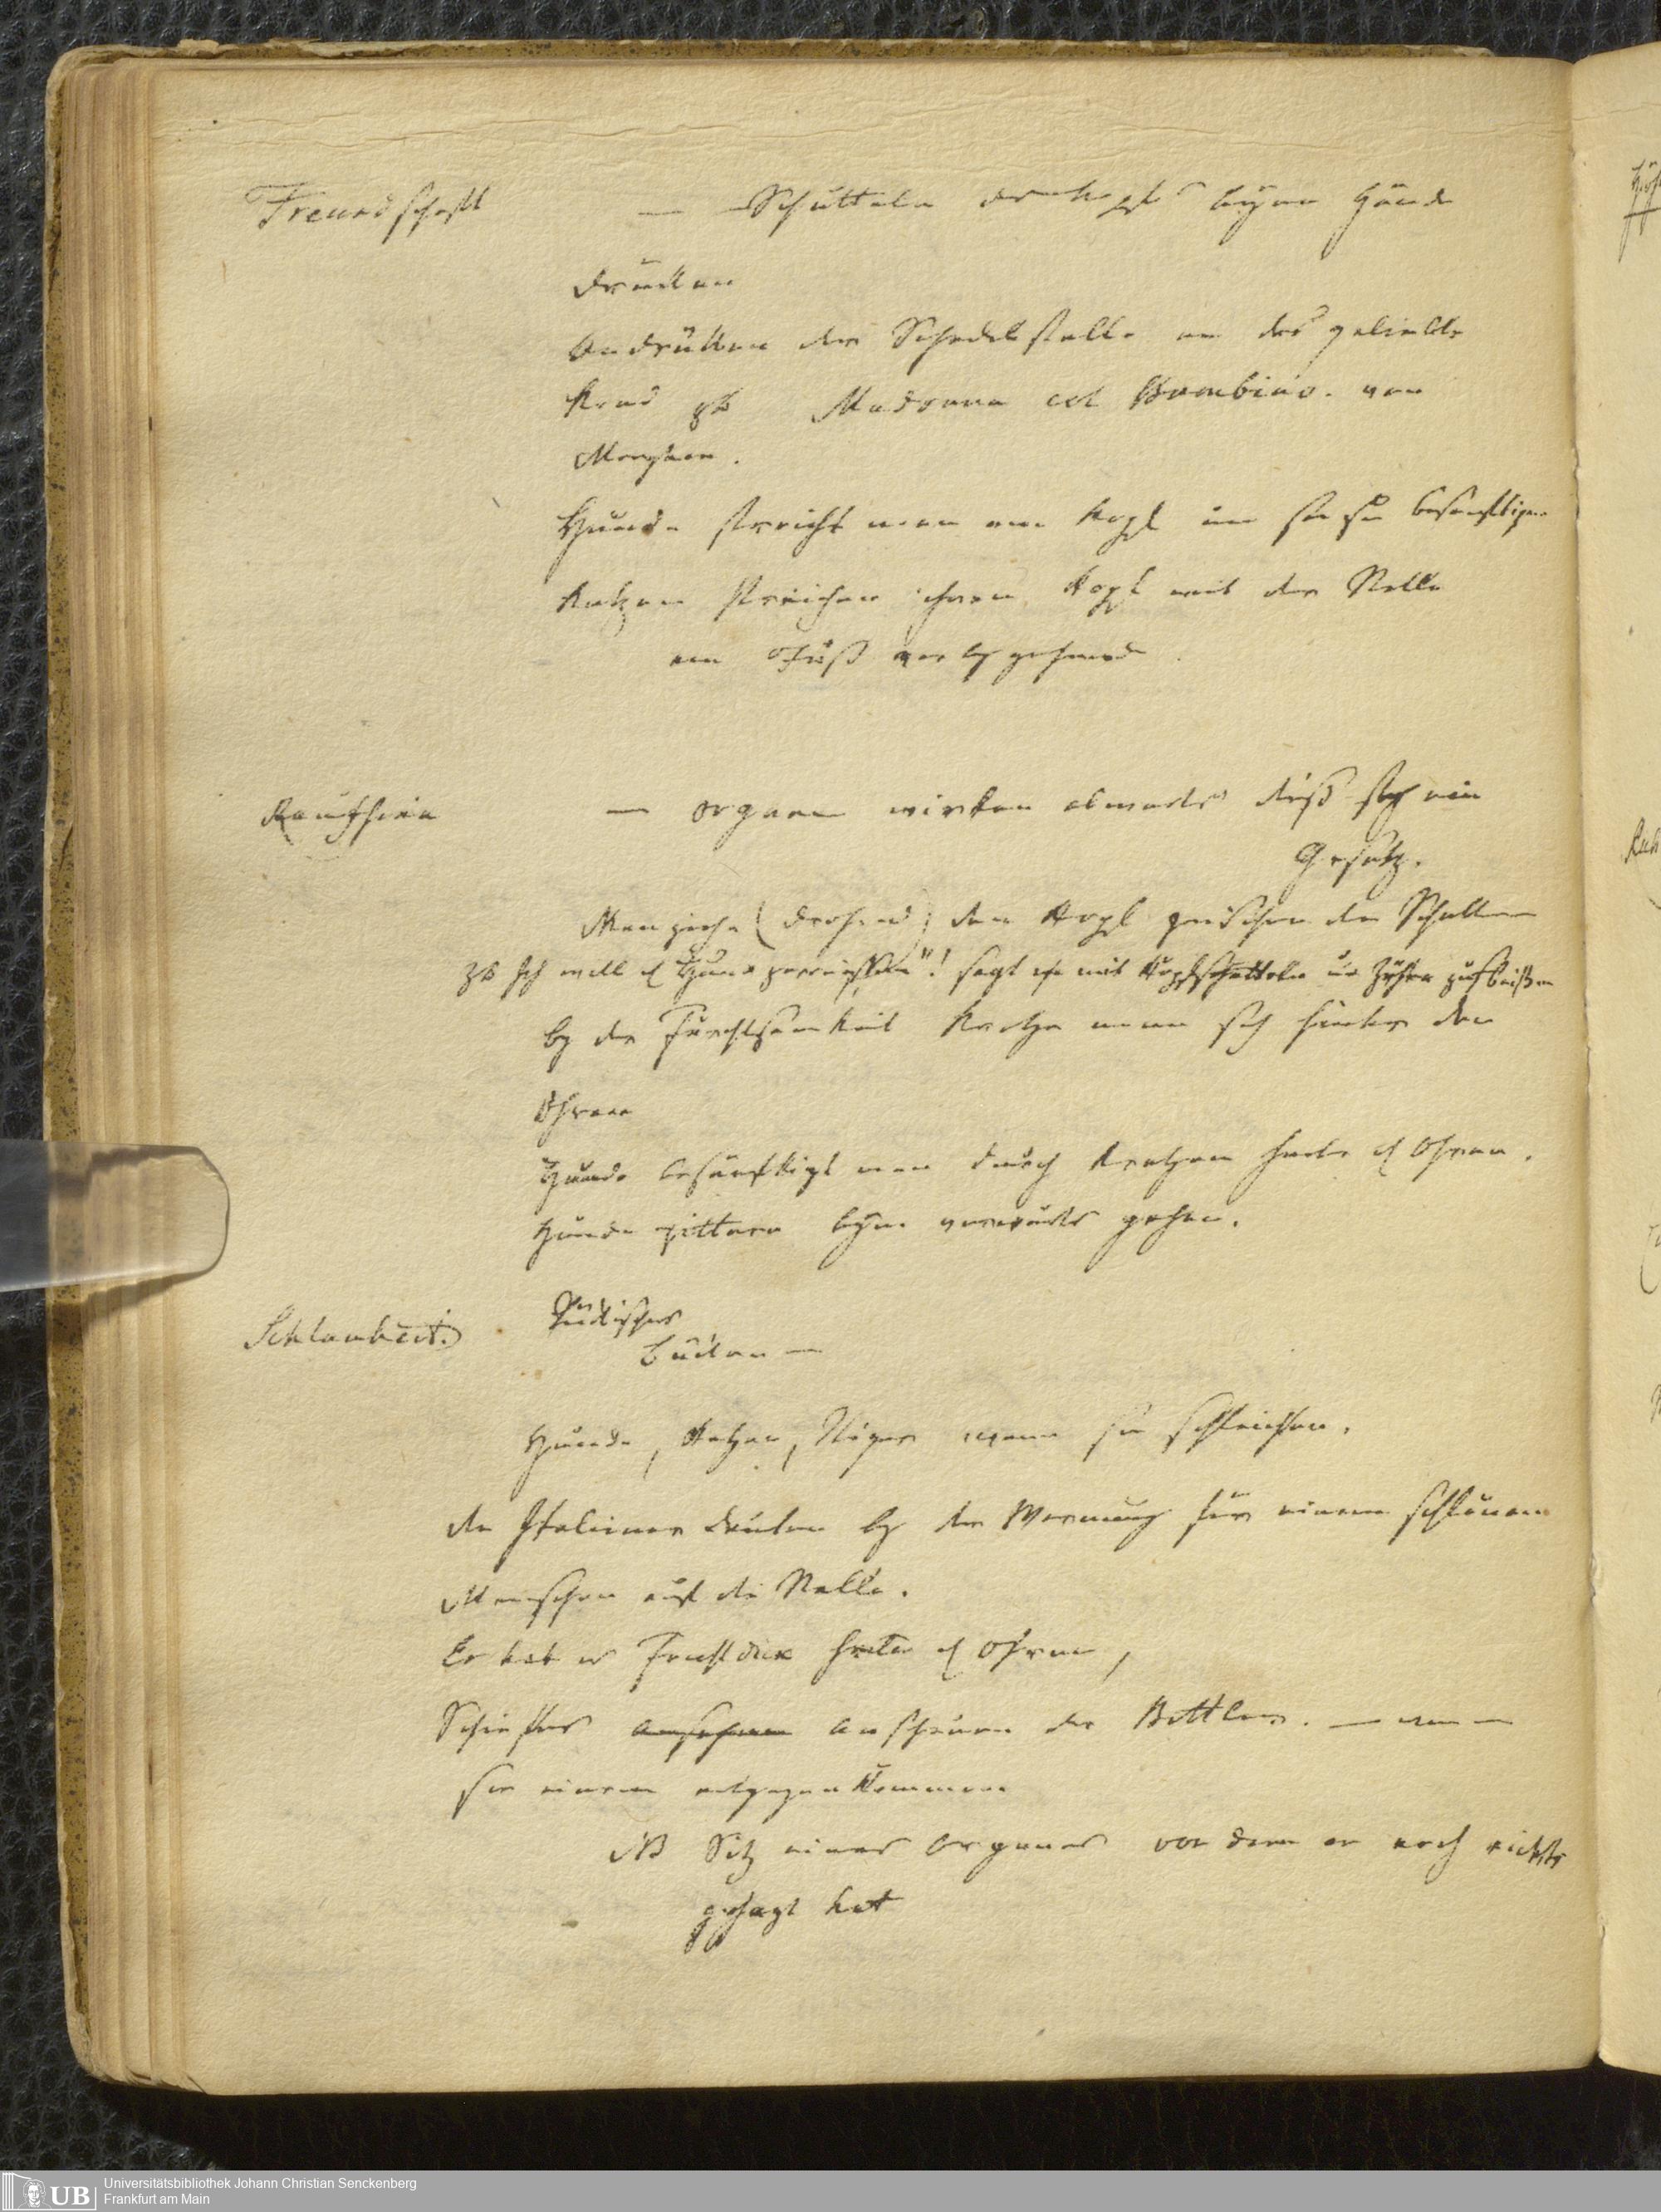 Freundschaft — Schütteln des Kopfs beym Hände
drücken
Andrücken der Schedelstelle an das geliebte
Kind zB Madonna col Bambino. von
Morghen.
Hunde streicht man am Kopf um sie zu besänftigen
Katzen streichen ihren Kopf mit der Stelle
am Fuß vorbeygehend.
Raufsinn — organ wirken abwärts dieß ist ein
Gesetz.
Man ziehe (drohend) den Kopf zwischen die Schultern
zB Ich will d Hund zerreissen"! sagt mit Kopfschütteln u Zähne zusbeißen
by der Furchtsamkeit kratze man sich hinter den
Ohren
Hunde besänftigt man durch kratzen hinter d Ohren.
Hunde zittern beym vorwärts gehen.
Schlauheit. Tückisches
Lauern —
Hunde, Katzen, Tiger wenn sie schleichen.
die Italiener deuten by der Warnung für einem schlauen
Menschen auf die Stelle.
Er hat es Faustdick hinter d Ohren,
Schiefes ansehen anschauen der Bettler. — wenn
sie einem entgegenkommen
NB Sitz eines Organes von dem er noch nichts
gesagt hat
Universitätsbibliothek Johann Christian Senckenberg
Frankfurt am Main
UB